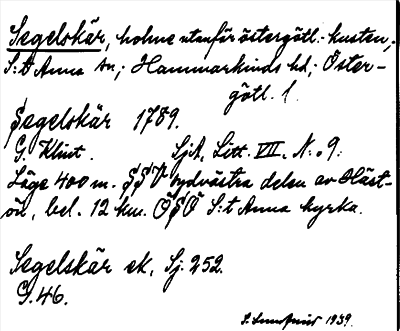 Segelskär, holme utanför östergötl. kusten,
S:t Anna sn; Hammarkinds hd; Öster-
götl. l.
Segelskär 1789.
G. Klint. SjA, Litt. VII. N:o 9.
Läge 400 m. SSV sydvästra delen av Häst-
ön, bel. 12 km. ÖSÖ S:t Anna kyrka.
Segelskär ek, Sj. 252.
G. 46.
1939.